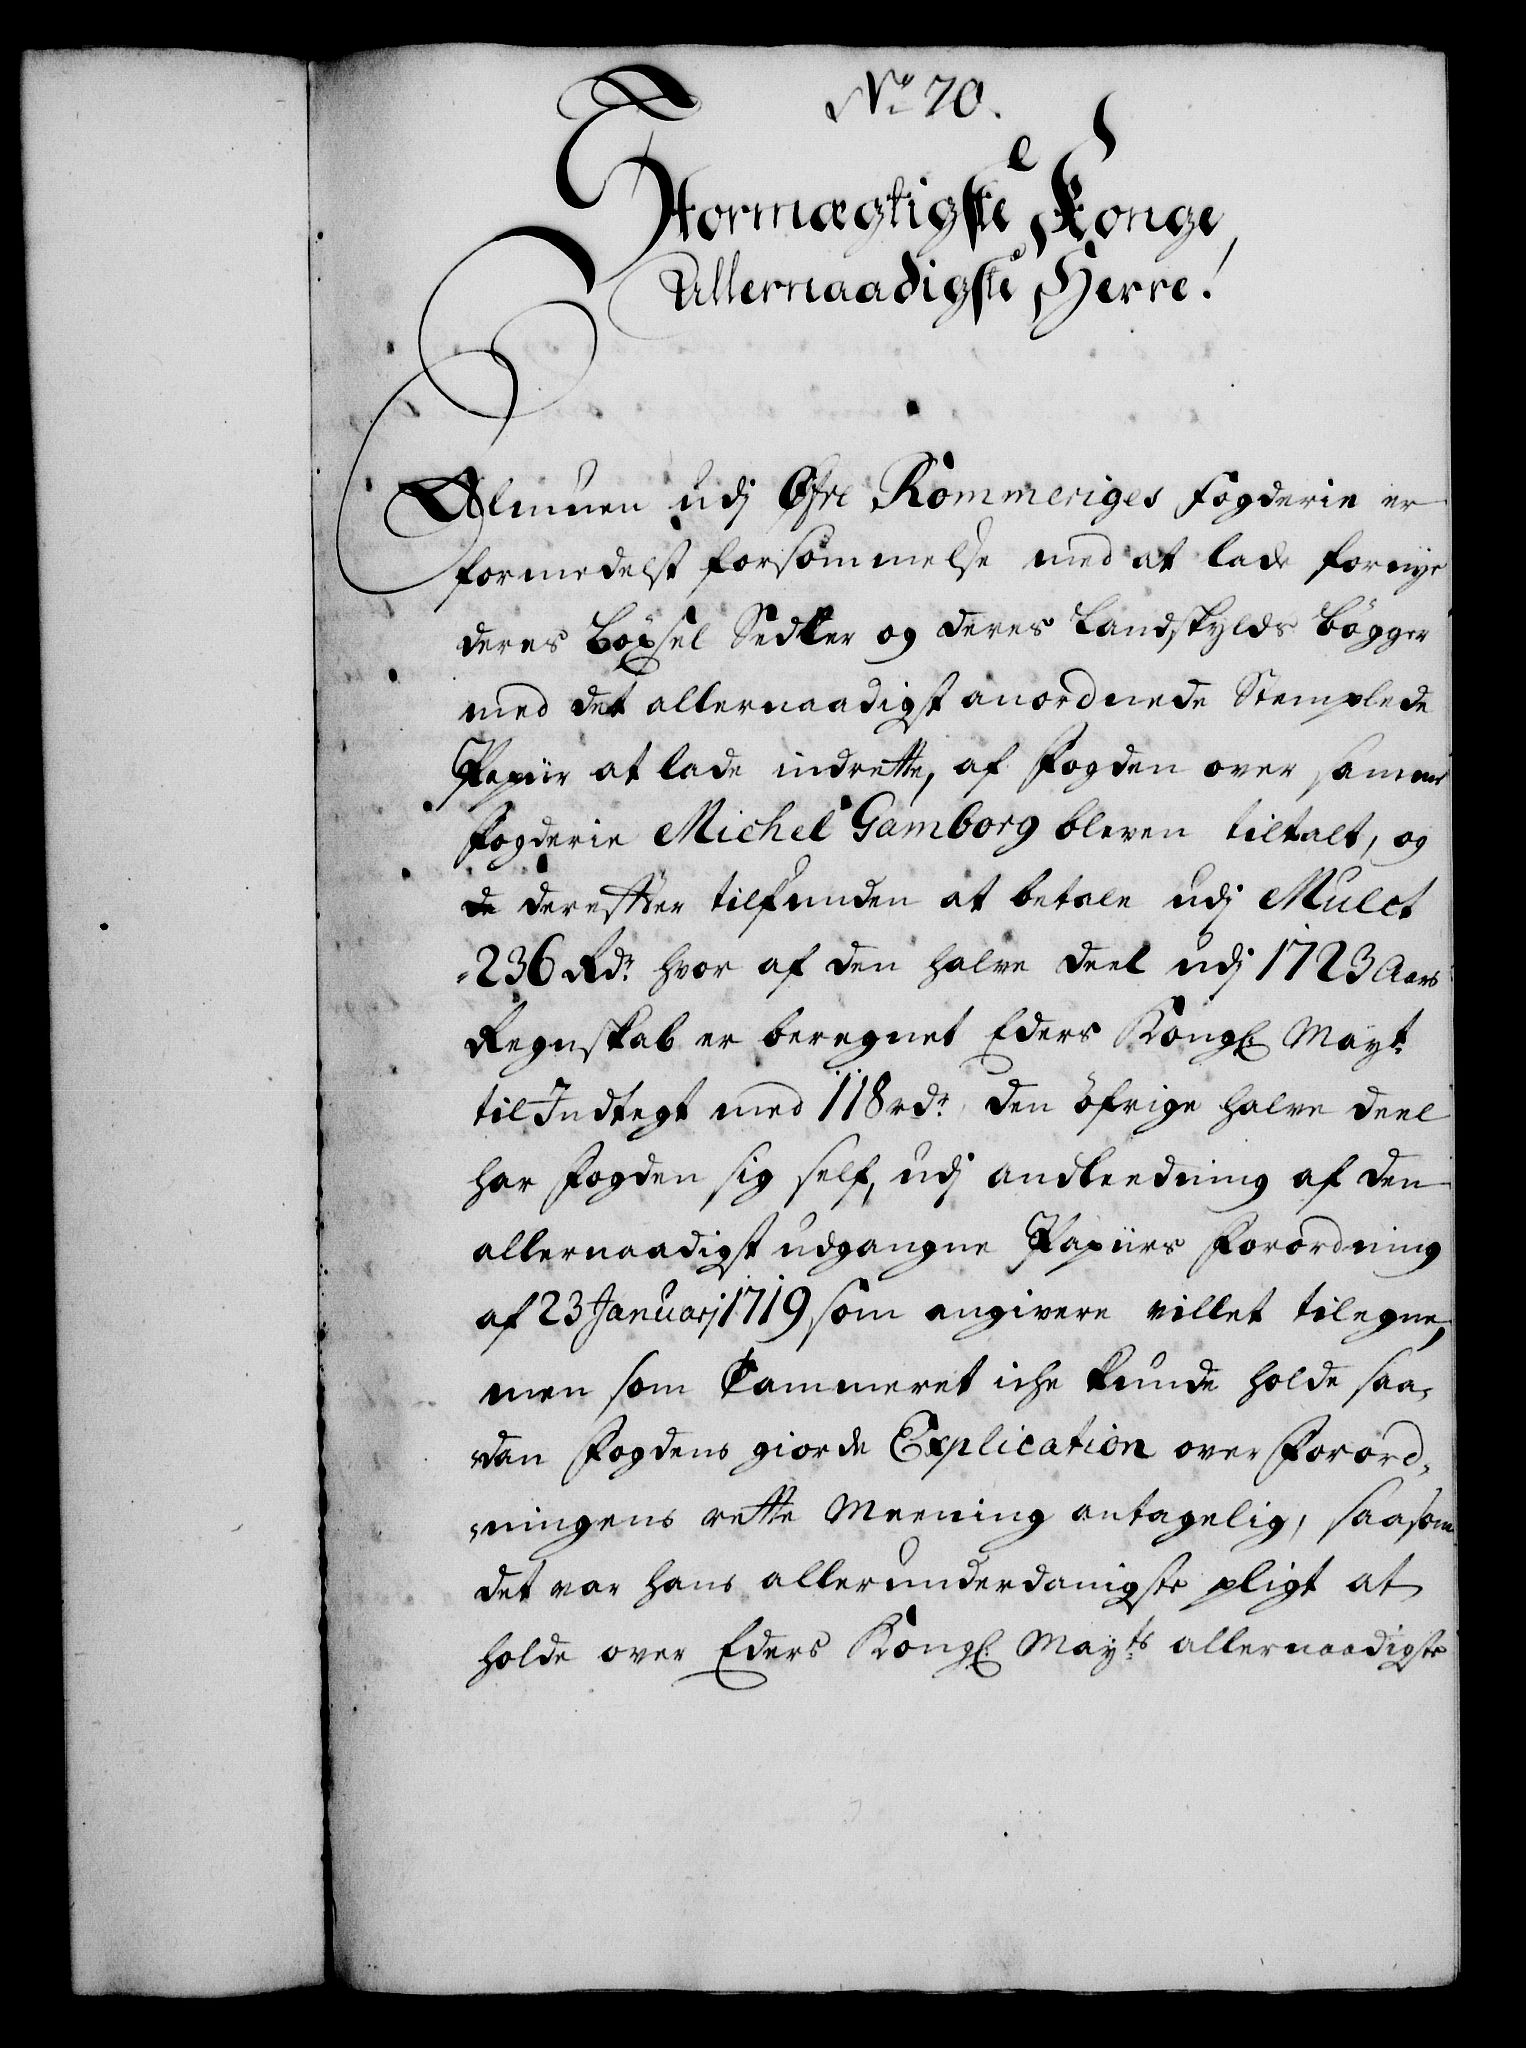 No 70.
Stormægtigste Konge,
Allernaadigste Herre!
Almuen udj Øfre Rommeriges Fogderie er
formedelst forsømmelse med at lade fornye
deres Böxsel Sedler og deres Landskylds bögger
med det allernaadigst anordnede Stemplede
Papiir at lade indrette, af Fogden over samme
Fogderie Michel Gamborg bleven tiltalt, og
de derefter tilfunden at betale udj Mulct
236 Rdr. hvor af den halve deel udj 1723 Aars
Regnskab er beregnet Eders Kongl. Mayt.
til Indtegt med 118 rdr. den öfrige halve deel
har Fogden sig self, udj andleedning af den
allernaadigst udgangne Papiirs Forordning
af 23 Januarj 1719 som angivere villet tilegne,
men som Cammeret iche kunde holde saa-
dan Fogdens giorde Explication over Forord-
ningens rette Meening antagelig, saasom
det var hans allerunderdanigste pligt at
holde over Eders Kongl. Mayts allernaadigste